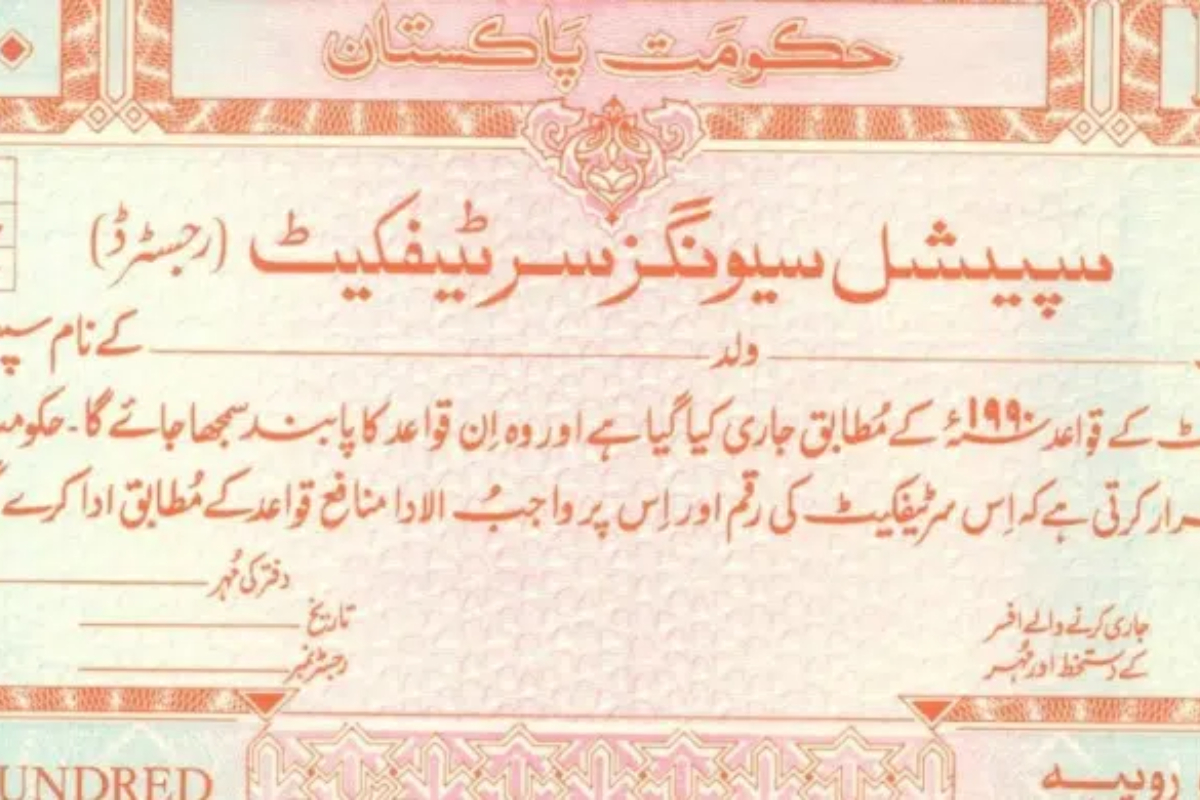 حکومت پاکستان
سپیشل سیونگز سرٹیفکیٹ (رجسٹرڈ)
ولد کے نام
کے قواعد ۱۹۹۰ء کے مُطابق جاری کیا گیا ہے اور وہ اِن قواعد کا پابند سمجھا جائے گا۔
کرتی ہے کہ اِس سرٹیفکیٹ کی رقم اور اِس پر واجبُ الادا منافع قواعد کے مُطابق ادا کرے
دفتر کی مُہر
تاریخ
جاری کرنے والے افسر
رجسٹر نمبر
کے دستخط اور مُہر
UNDRED
روپیہ